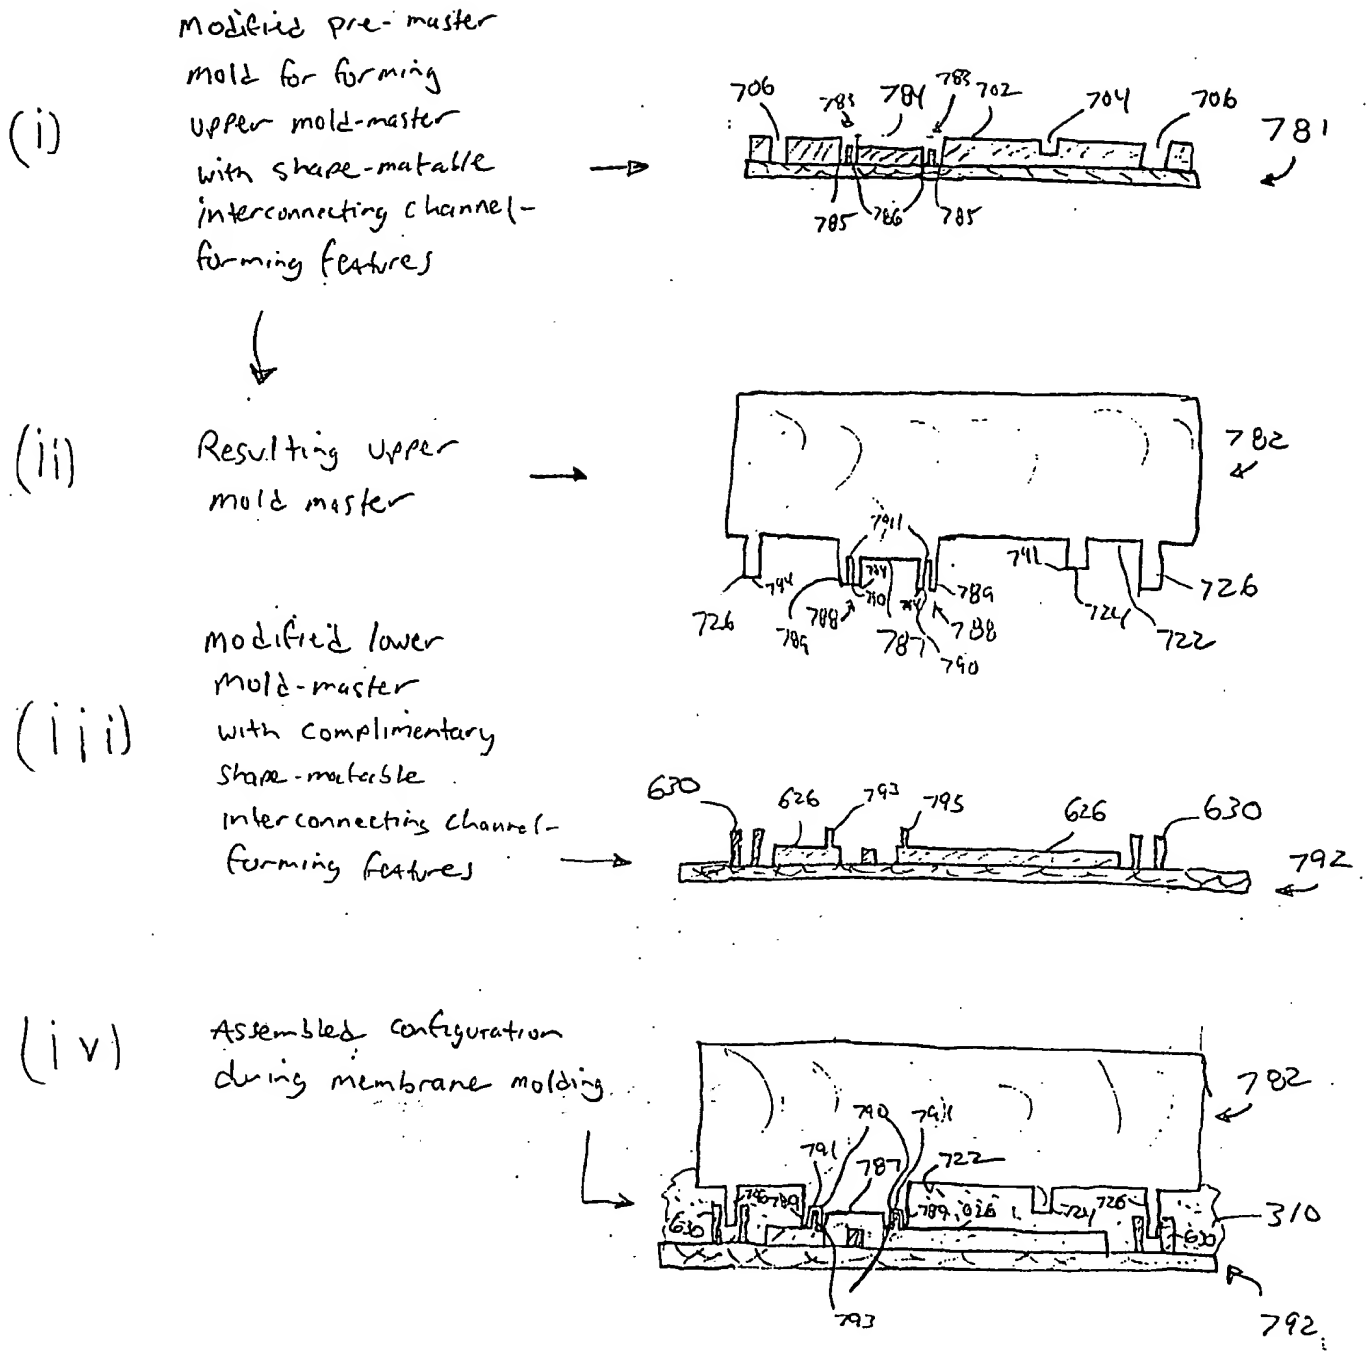 (i)
Modified pre-master
mold for forming
upper mold-master
with shape-matable
interconnecting channel-
forming features
706 783 784 783 702 704 706 781
785 786 785
(ii)
Resulting upper
mold master
782
791
741
794 794 790 794 789 726
726 789 788 787 790 788 724 722
(iii)
Modified lower
mold-master
with complimentary
shape-matable
interconnecting channel-
forming features
630 626 793 795 626 630
792
(iv)
Assembled configuration
during membrane molding
782
790 791
791 787 722
789 789 626 724 726 310
630 630
793
792